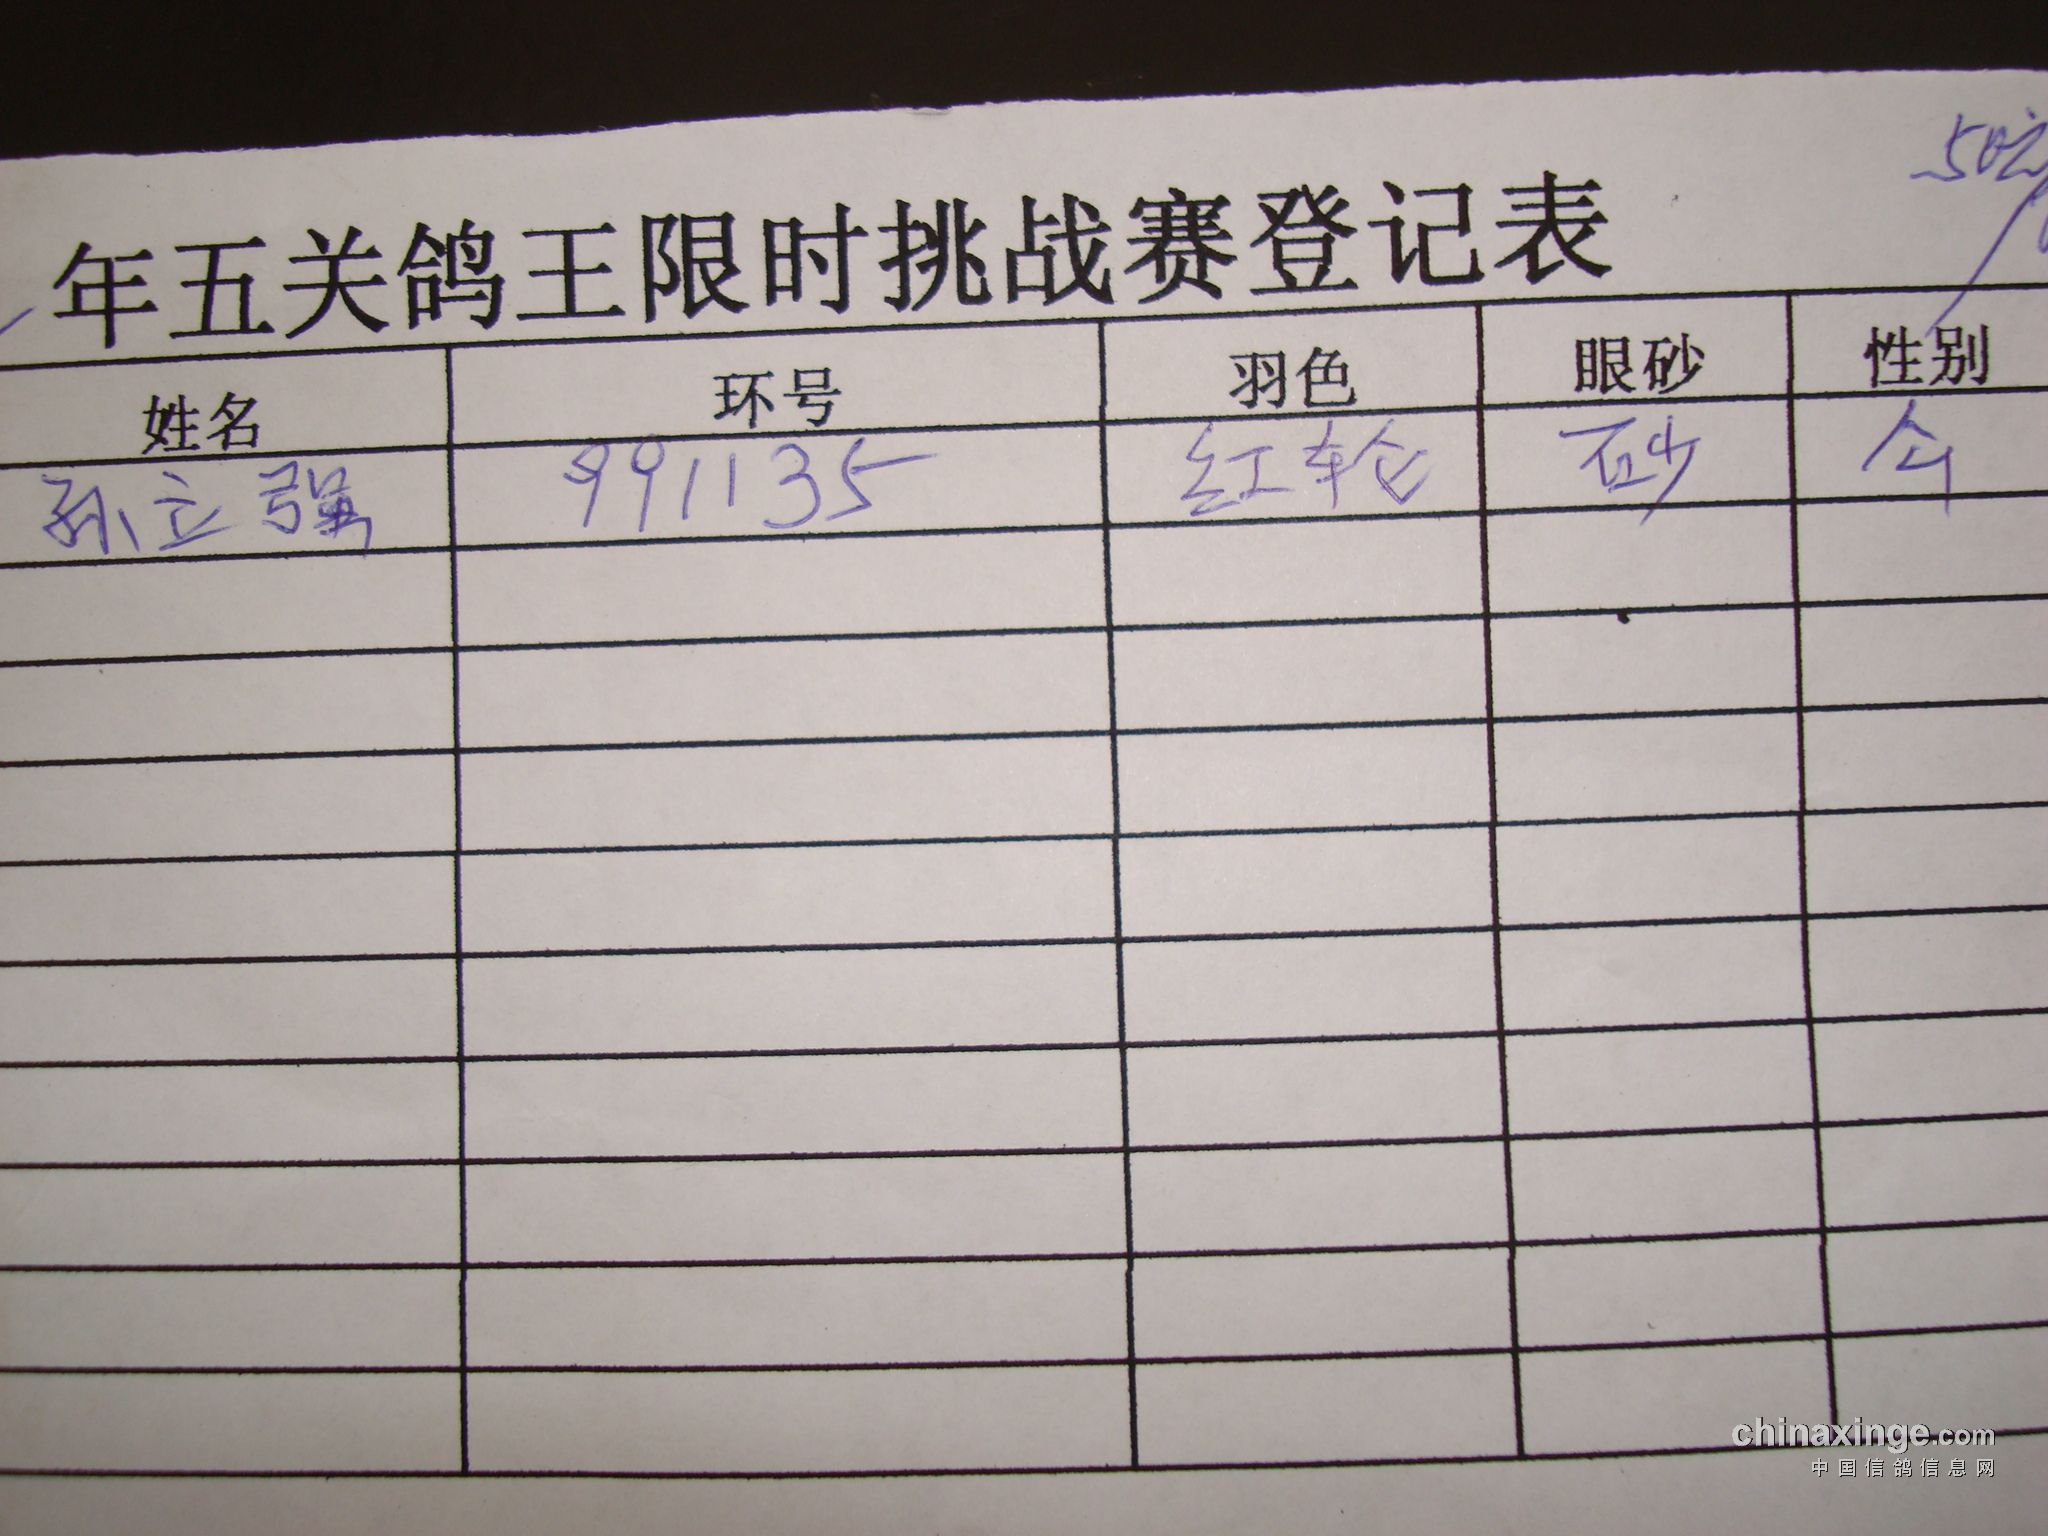 50
年五关鸽王限时挑战赛登记表
姓名 环号 羽色 眼砂 性别
孙立强 991135 红轮 砂
chinaxinge.com
中国信鸽信息网